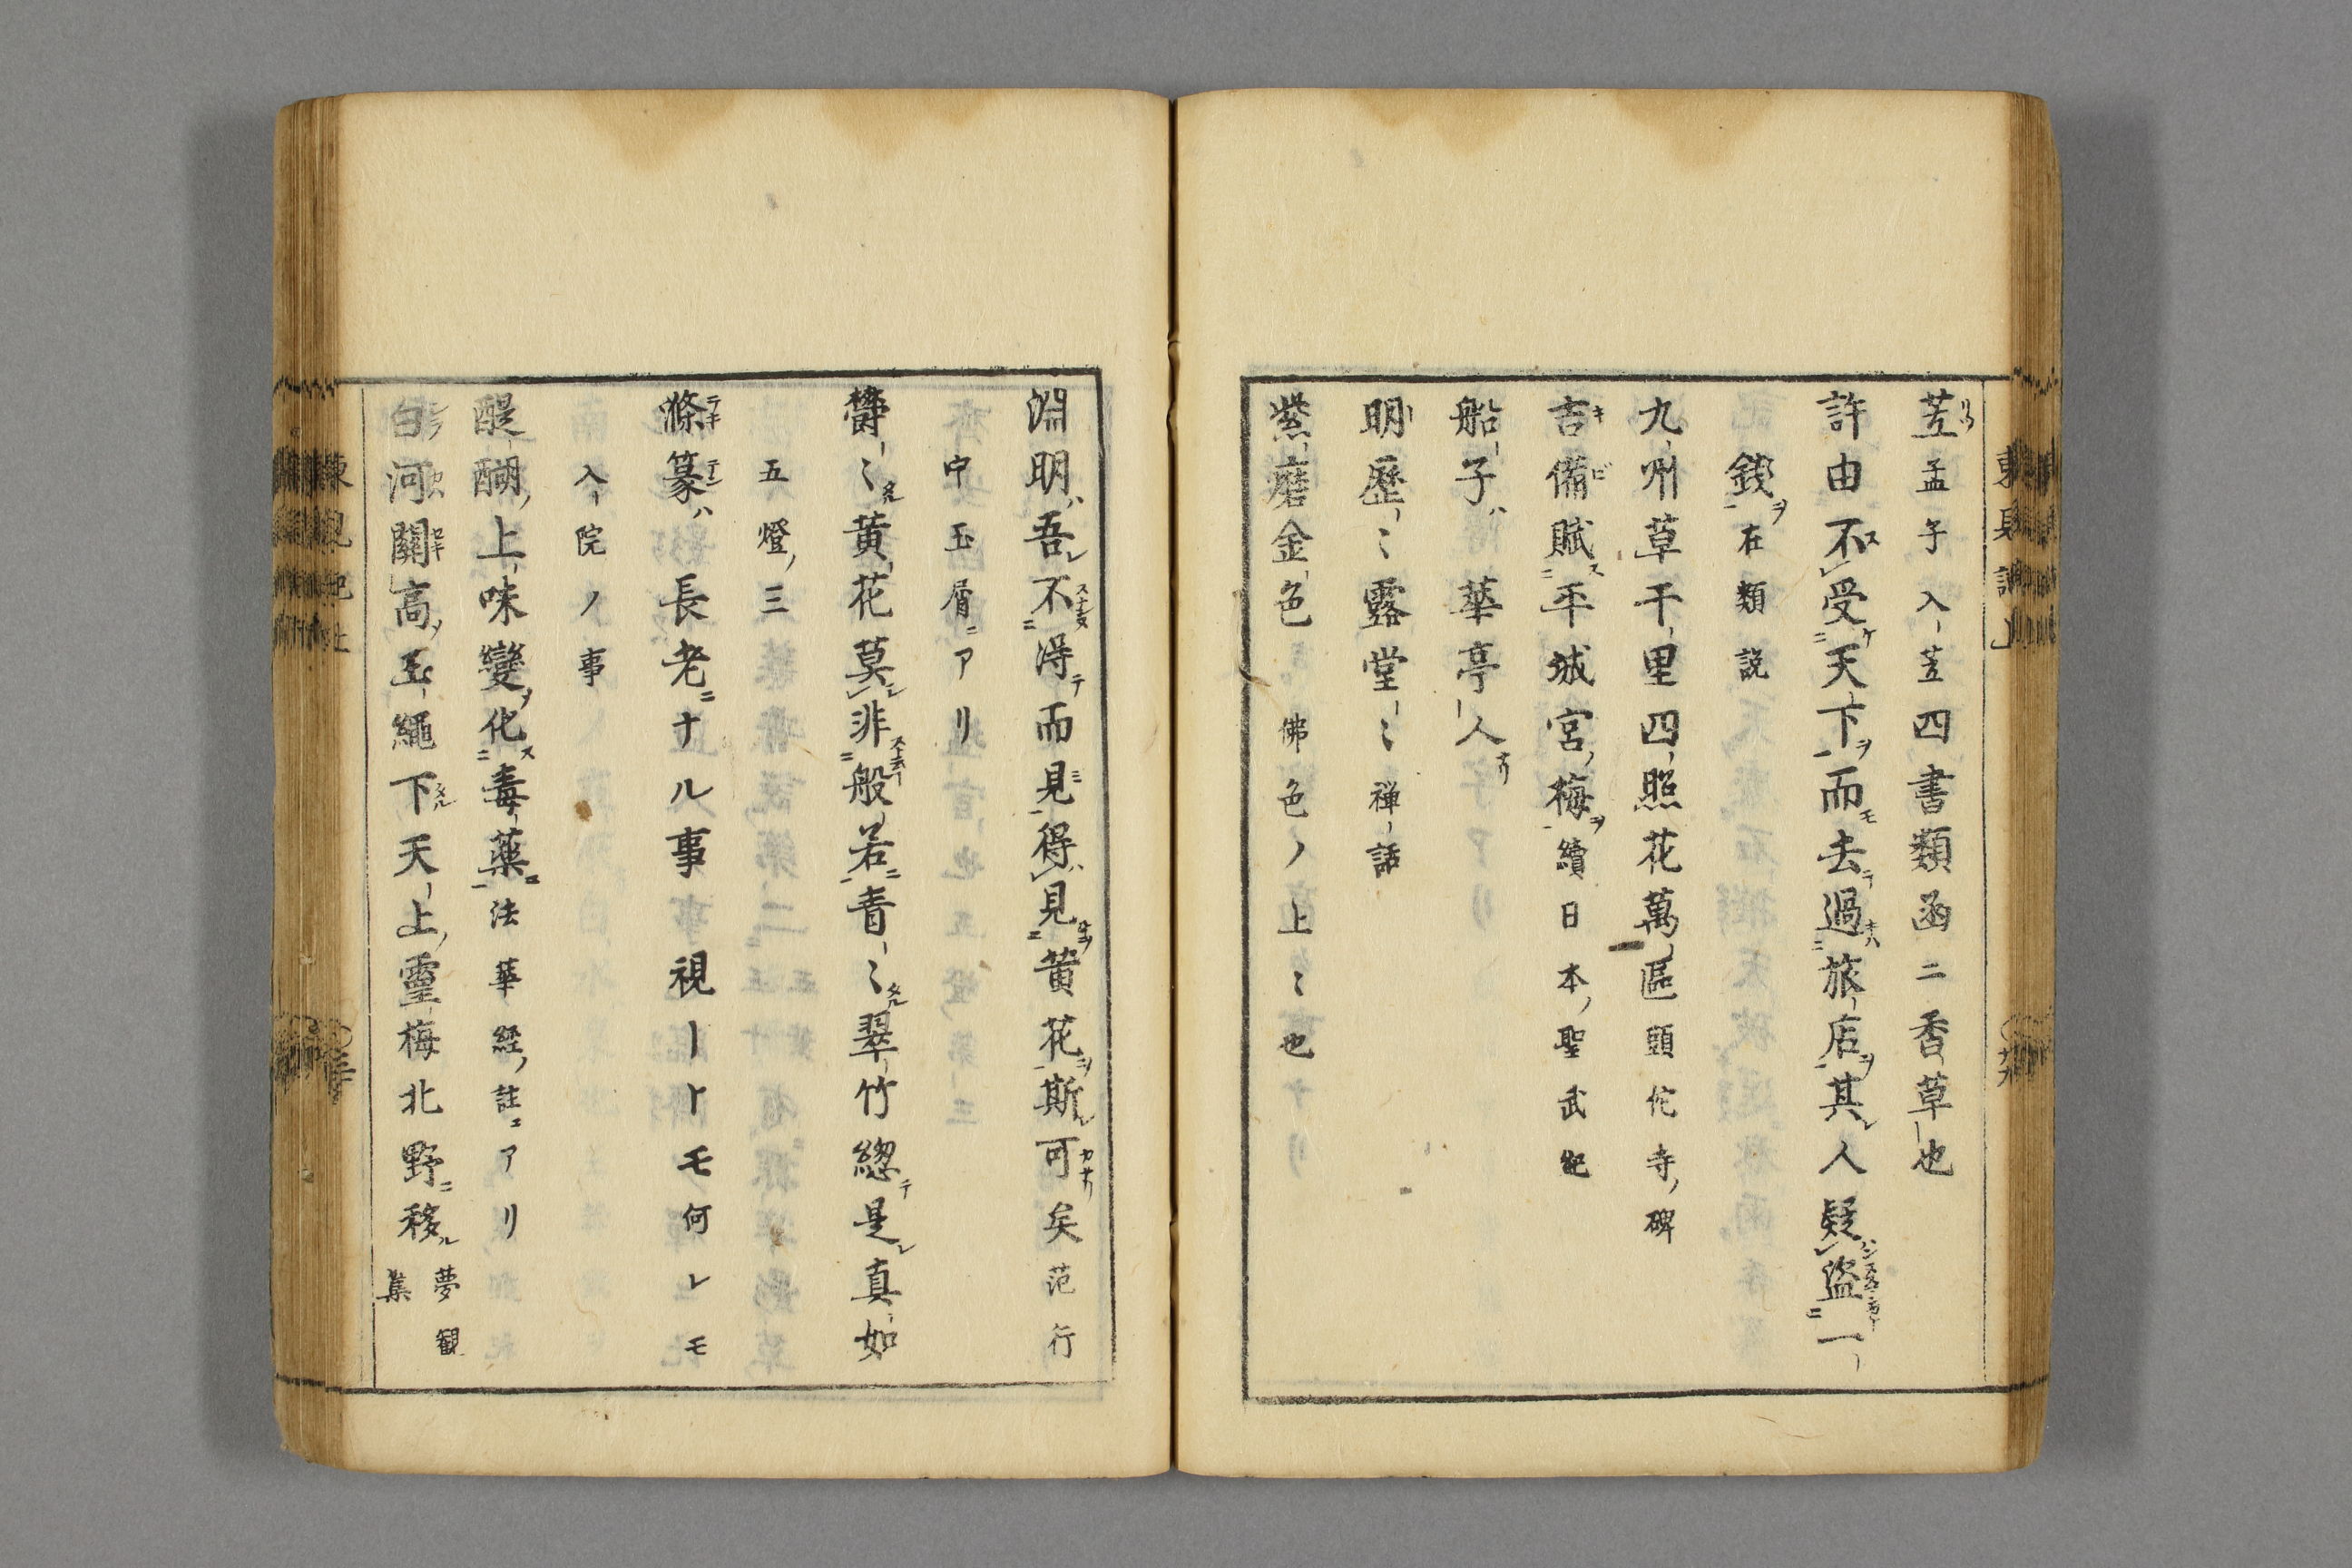 苙孟子入苙四書類函ニ香草也
許由不受天下而去過旅店其人疑盜一
錢在類説
九州草千里四照花萬區頭佗寺ノ碑
吉備賦平城宮梅續日本ノ聖武紀
船子ハ華亭人
明歷〻露堂〻禅話
紫磨金色 佛色ノ上〻也
淵明ハ吾不得而見得見黄花斯可矣范行
中玉屑ニアリ
欝〻黄花莫非般若青〻翠竹總是真如
五燈ノ三
滌篆ハ長老ニナル事視ートモ何レモ
入院ノ事
醍醐上味變化毒藥法華経ノ註ニアリ
白河關高玉繩下天上靈梅北野移夢観
集